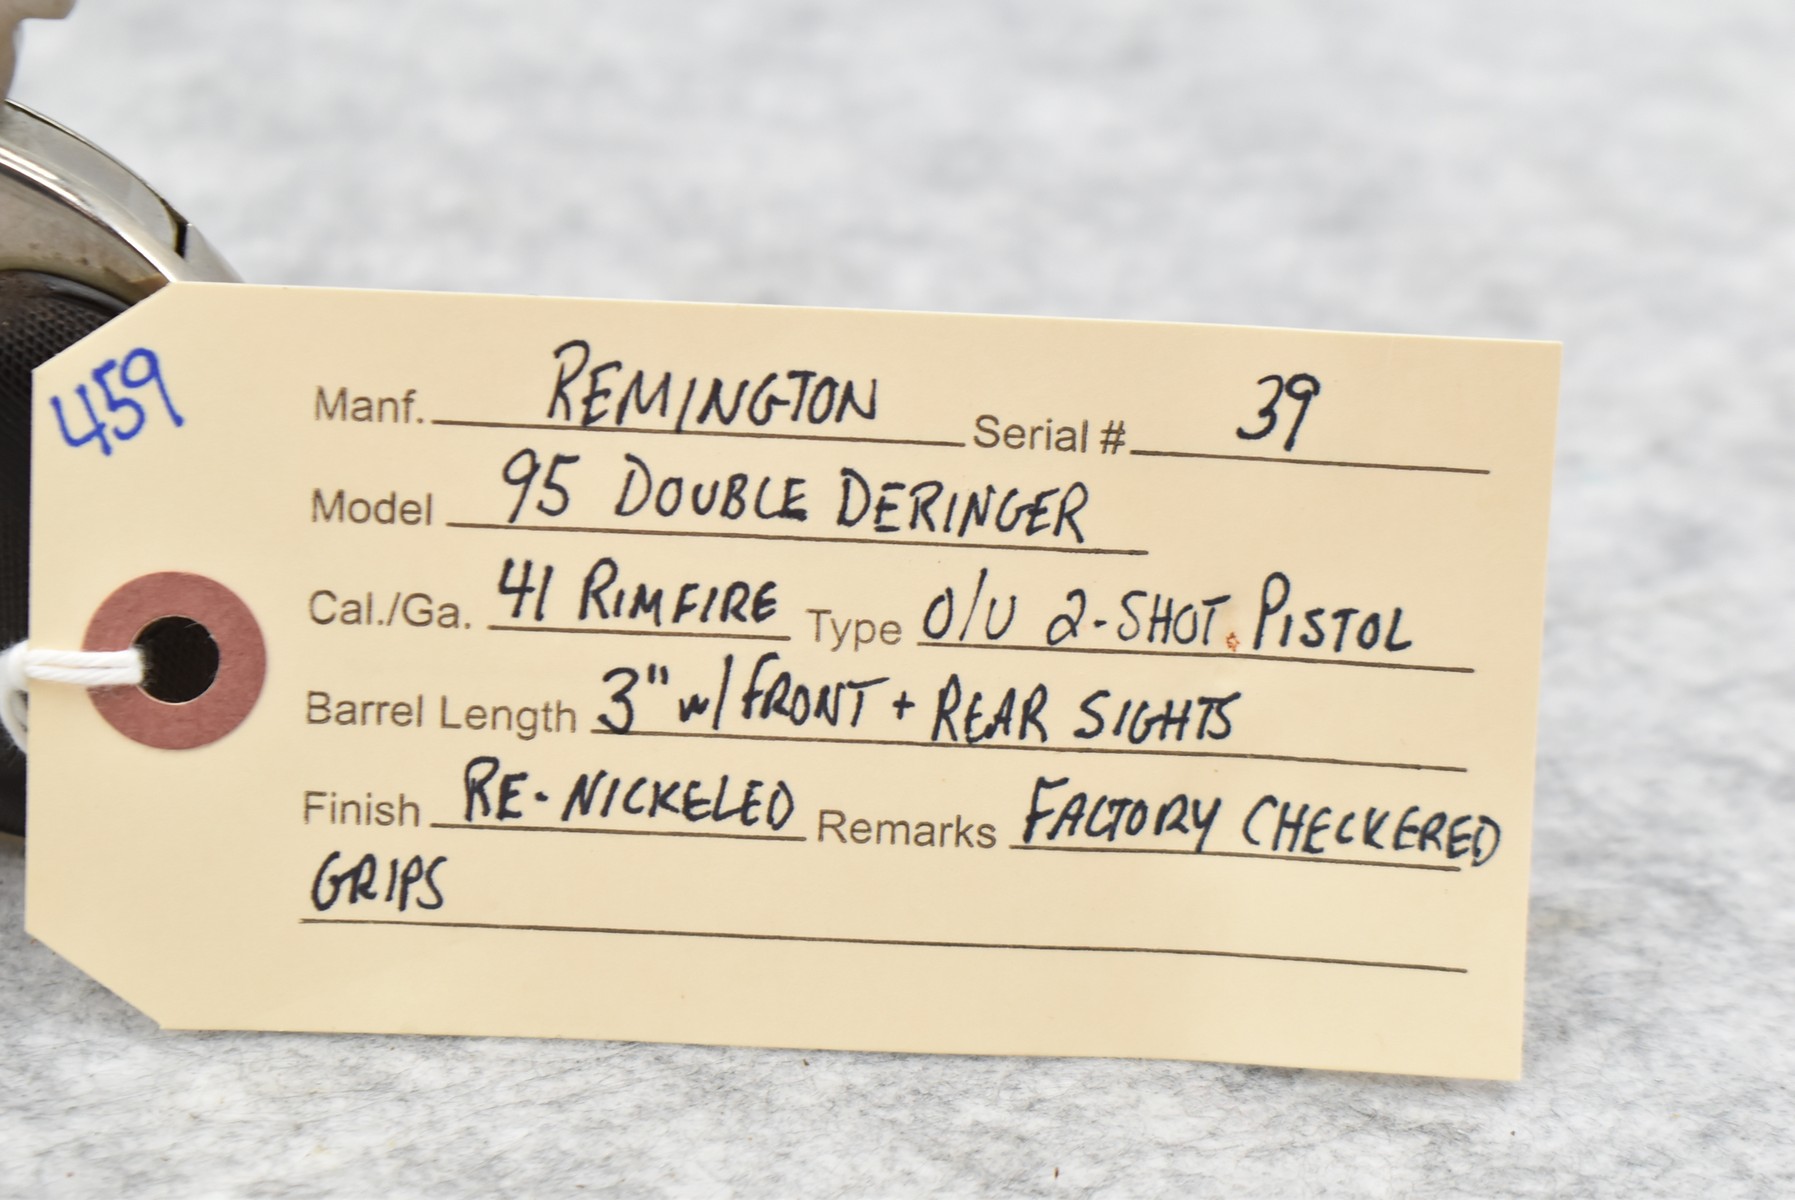 459
Manf. REMINGTON Serial # 39
Model 95 DOUBLE DERINGER
Cal./Ga. 41 RIMFIRE Type O/U 2-SHOT PISTOL
Barrel Length 3" w/ FRONT + REAR SIGHTS
Finish RE-NICKELED Remarks FACTORY CHECKERED
GRIPS